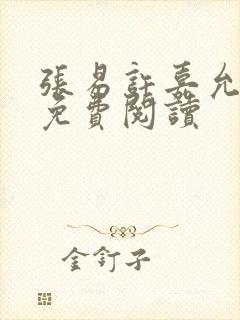 張易許嘉允
免費閱讀
金釘子